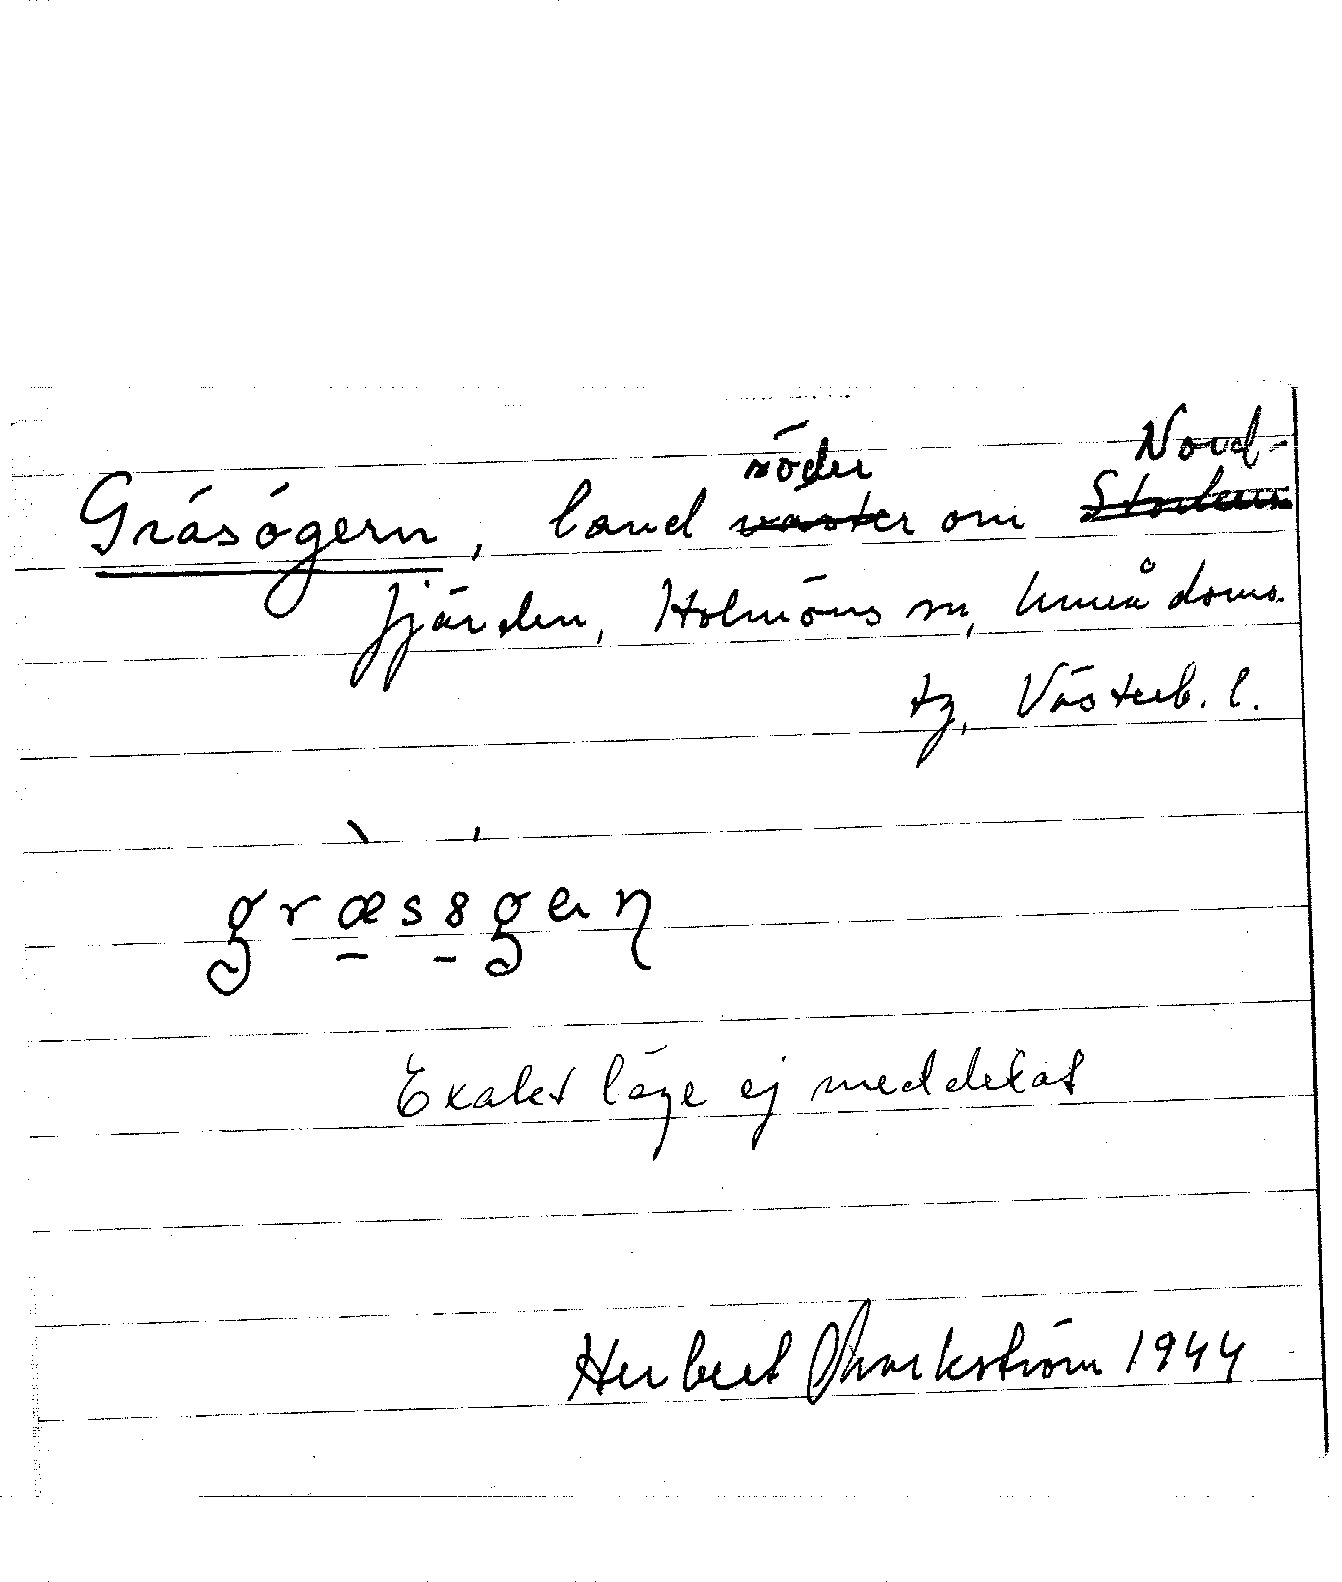 söder Nord-
Gräsögern, land väster om
fjärden, Holmöns sn, Umeå doms.
tg, Västerb. l.
græs8gern
Exakt läge ej meddelat
Herbert Markström 1944